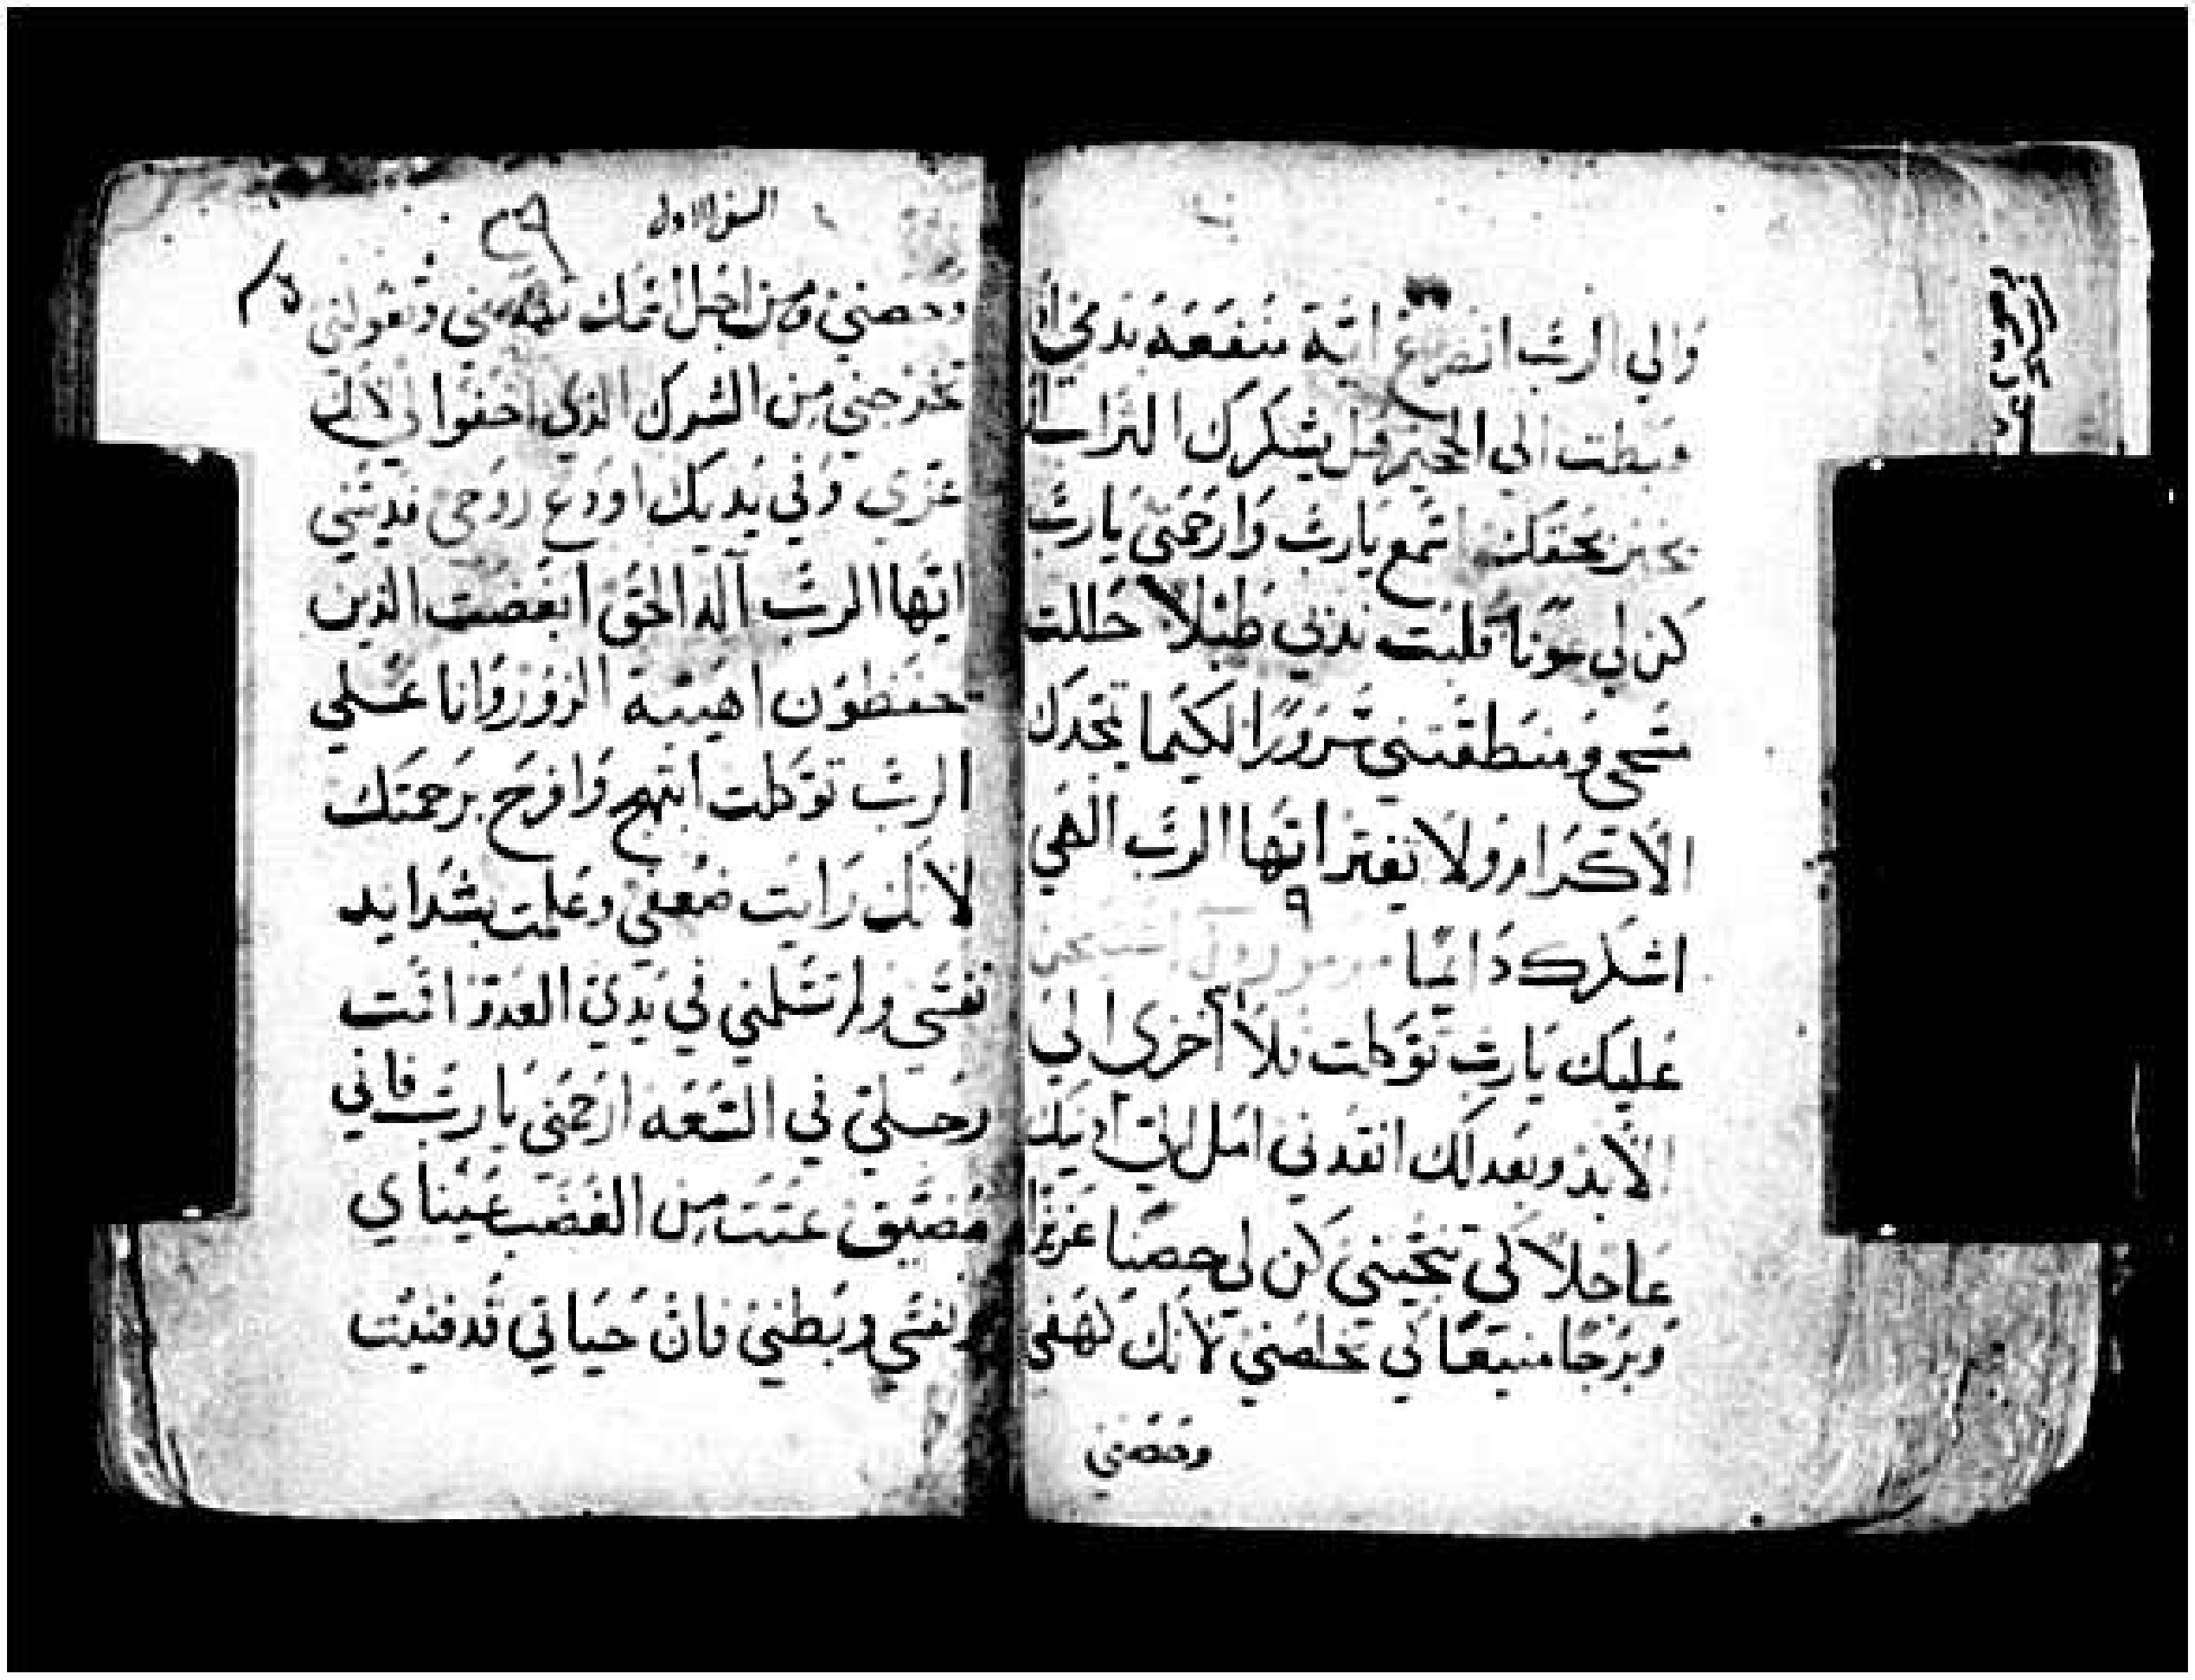 والي الرب اتضرع اية منفعة بدمي اذا
هبطت الي الجحيم هل يشكرك التراب او
يخبر بحقك اسمع يارب وارحمني يارب
كن لي عونا قلبت ندبي طبلا حللت
مسحي ومنطقتني سرورا لكيما تمجدك
الاكرام ولا تفتر ايها الرب الهي
اشكرك دايما
عليك يارب توكلت فلا آخزى الي
الابد وبعدلك انقدني امل الي آذنيك
عاجلا كي تنجيني كن لي حصنا عزيزا
وبرجا منيعا كي تخلصني لانك كهفي
وحصني
السفر الاول
٣٩
وحصني ومن اجل اسمك تهديني وتعولني
تخرجني من الشرك الذي اخفوا لي لانك
عزي وفي يديك اودع روحي فديتني
ايها الرب آله الحق ابغضت الذين
حفظون اهيبة الزور وانا علي
الرب توكلت ابتهج وافرح برحمتك
لانك رايت ضعفي وعلمت بشدايد
نفسي ولم تسلمني في يدي العدو اقمت
رجلي في السعه ارحمني يا رب فاني
مضيق عتت من الغضب عيناي
ونفسي وبطني فان حياتي قد فنيت